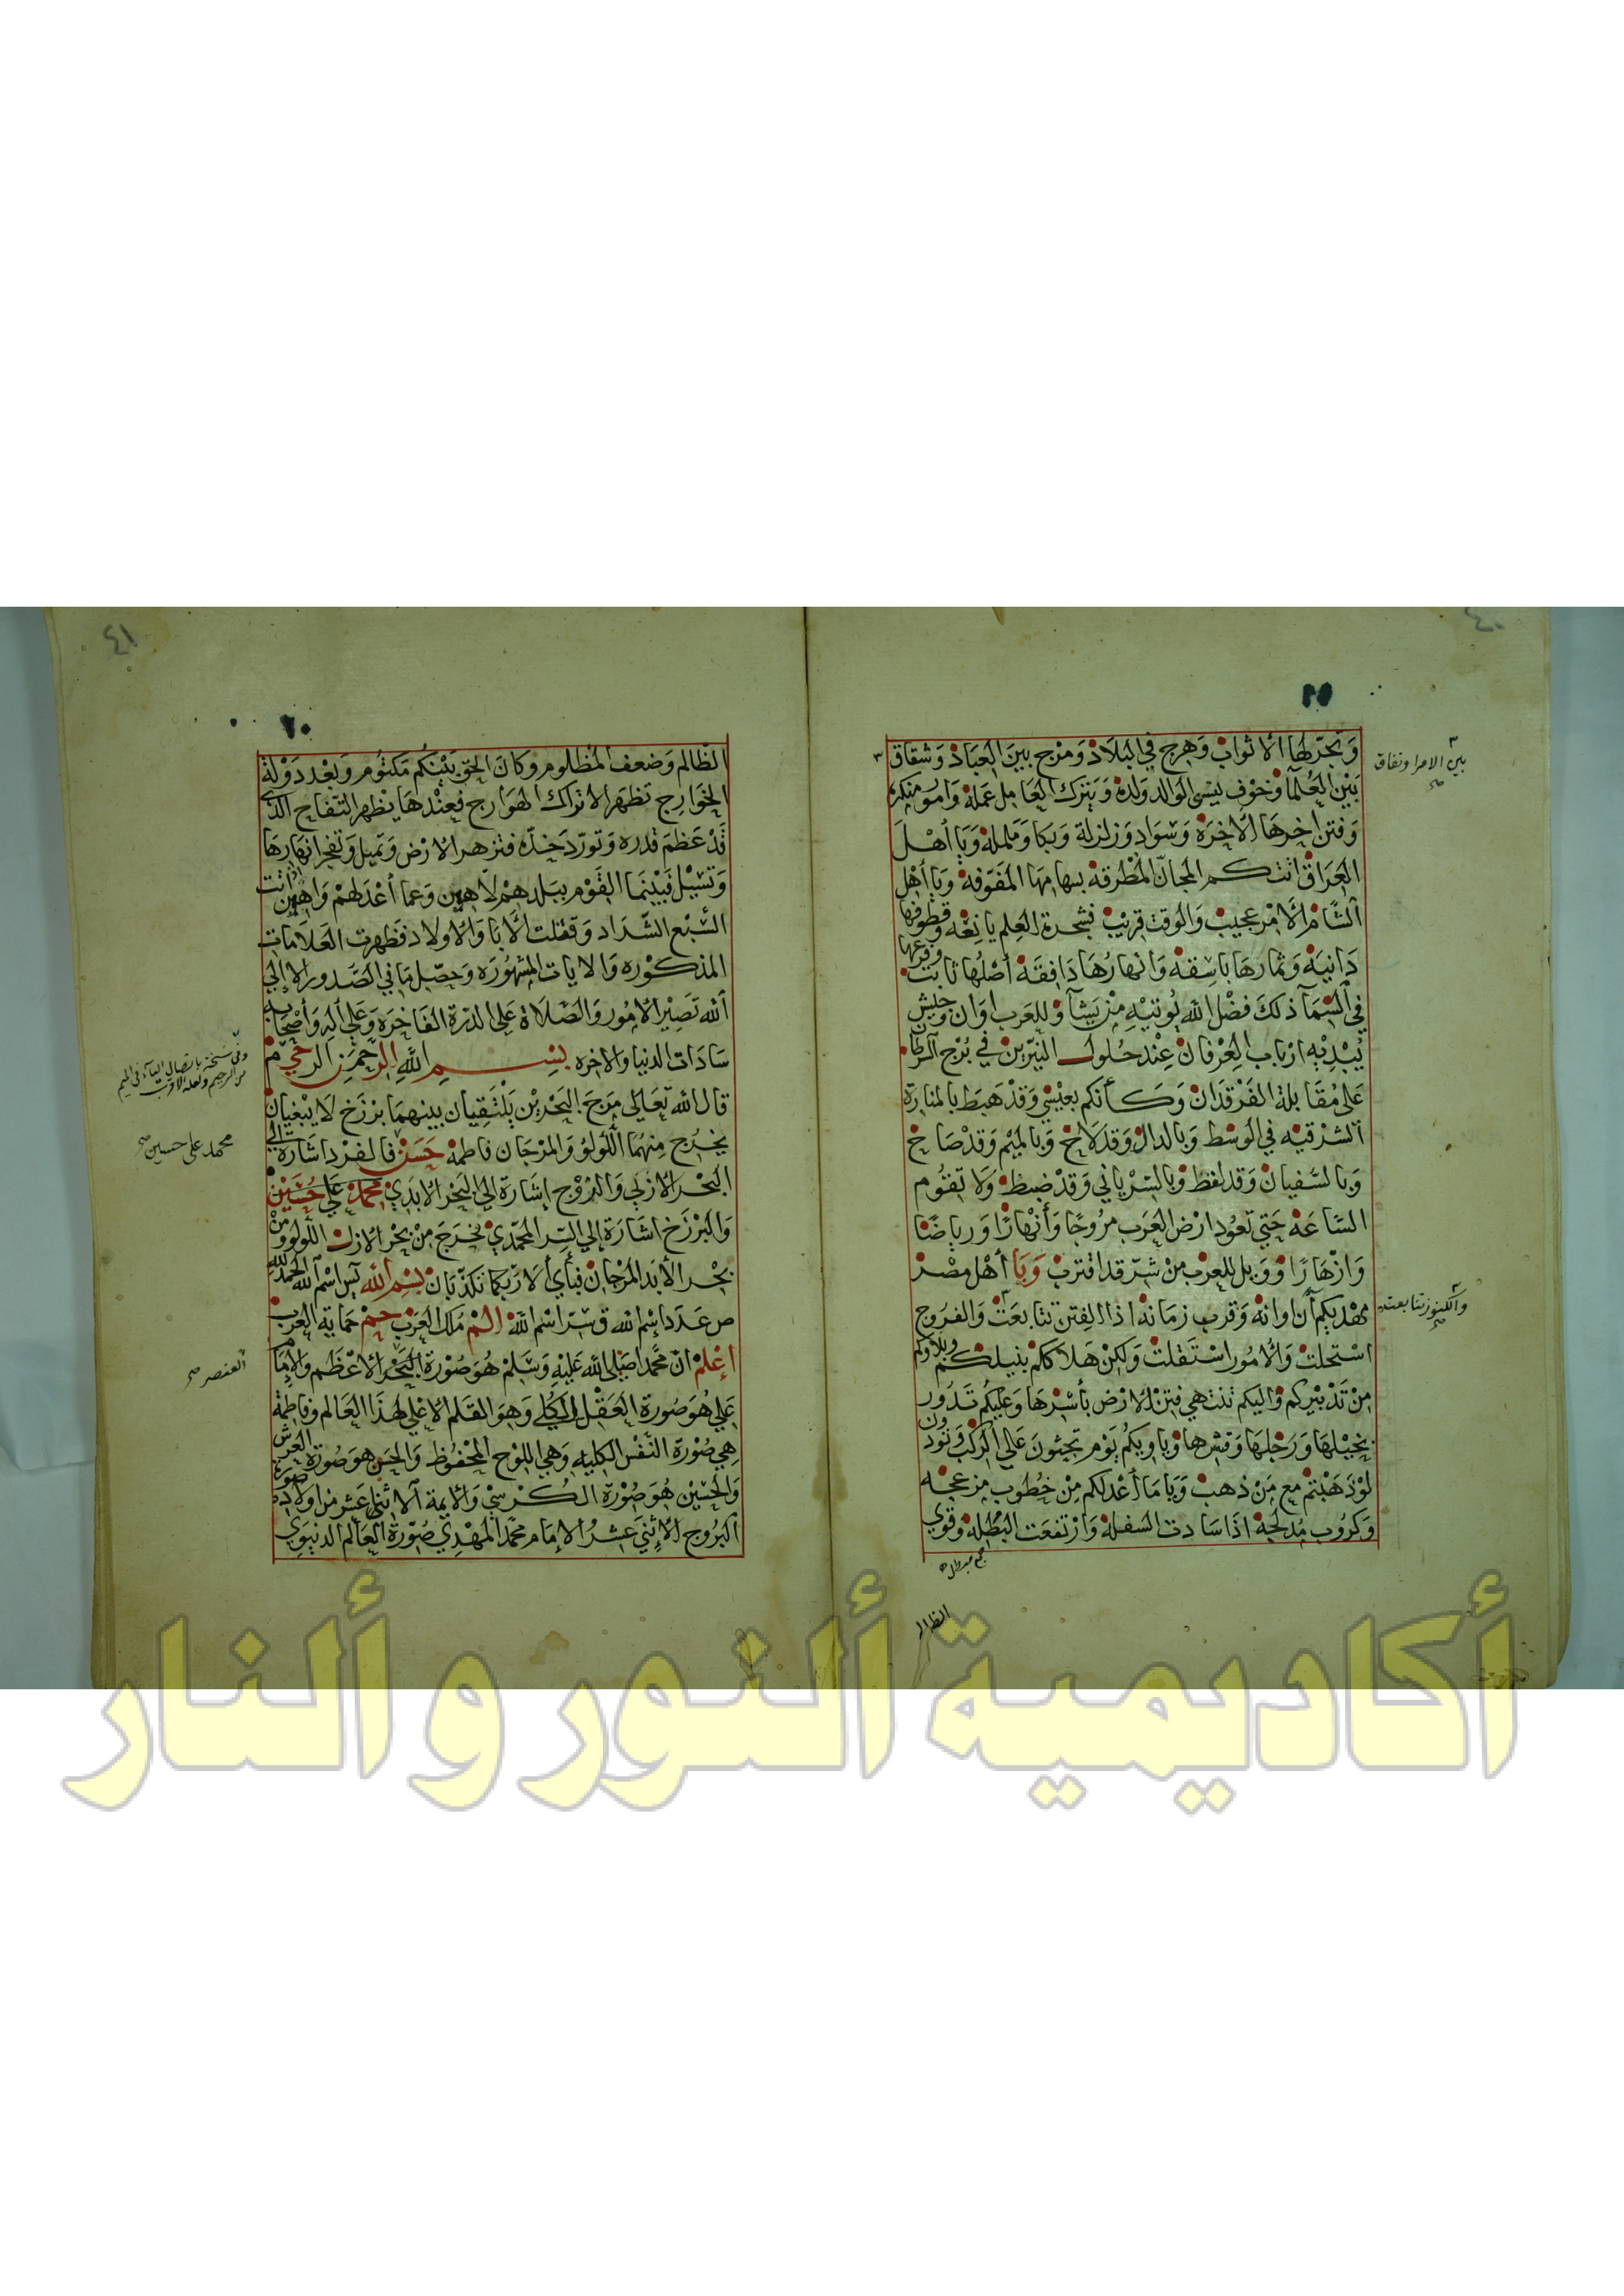 ٤٠
٥٩
وَتجرّلها الاثواب وَهرج في البلَادْ وَمرْج بينَ العِبَادْ وَشقاق
بين الامرا ونفاق صح
بَيْن العُلمآ وَخوْف ينسى الوَالد وَلدهْ وَيَترك العَامل عَملهْ وَامُور منكره
وَفتن اخرها الاخرَهْ وَسَوَاد وَزلزلة وَبكا وَململهْ وَيَا أهْلَ
العِرَاق اتتكم المجانّ المطْرقه بسهامهَا المفَوّقه وَيا أهْل
الشَّام الَامْر عجيب وَالوَقت قريْب فشجرة العِلم يانِعَه وَقطوفهَا
دَانيهْ وَثمارهَا باسِقهْ وَانهارُهَا دَافقَهْ أصْلُهَا ثابت وفرعها
في السَّمَآ ذلكَ فضْل الله يُؤتيْهِ مَنْ يَشآ وَلِلعَرب اوَان وَجيش
يُبْديْهِ ارْبَاب العِرْفان عِنْد حُلول النيّرين في بُرْج السرطان
عَلى مُقَابلة الفَرْقدَان وَكأنكم بعيْسى وَقدْ هَبَط بالمنَارة
الشرْقيّه في الوَسط وَبالدال وَقدْ لَاخ وَبالميْم وَقدْ صَاخ
وَبالسّفيان وَقد لغط وَبالسّرْيَاني وَقدْ ضبط وَلَا تقوُم
السَّاعَهْ حَتى تعُود ارْض العَرَب مرُوجًا وَأنْهارًا وَريَاضًا
وَازْهَارًا وَوَيل للعِرب منْ شرّ قد اقترب وَيَا أهْل مصْر
مهْديكم آن اوانهْ وَقرب زمَانهْ اذا الفِتن تتابعَتْ وَالفرُوج
وَالكنوز تتابعت صح
استحلت وَالأمُور اسْتقلتْ وَلكِنْ هَلاككم بنيلكم وَبلاؤكم
منْ تَدْبيْركم وَاليكم تنتهي فتنْ الارْض بأسْرهَا وَعليْكُم تَدُور
بخيْلهَا وَرَجلهَا وَقشرهَا وَيَا وَيكمُ يَوْم تجثونَ عَلى الركَب وَتودون
لوْ ذَهَبْتم مَع مَنْ ذهب وَيَا مَا أعْدلكم مِنْ خطوب مزعجه
وَكروُب مُدلجهْ اذَا سَادت السفلة وَارْتفعَت البُطْلة وَقوي
الظالم
٤١
٦٠
الظّالم وَضعف المظلوم وَكانَ الحق بَيْنكُم مَكتُوم وَبعْد دَوْلة
الخوَارِج تظهَر الاتراك الهوَارج فعِنْدهَا يظهر التفاح الذي
قدْ عَظمَ قدْره وَتورّد خدّه فتزهر الارْض وَتميل وَتفجر انهارهَا
وَتسِيْل فَبيْنمَا القَوْم ببلدهمْ لَاهين وَعما أعْدَلهمْ وَاهين اذ اتت
السَّبْع الشّدَاد وَقتلت الأبَا وَالأوْلاد فظهرت العَلَامَات
المذكوْره وَالايات المشهُورَه وَحصّل مَا في الصّدور الا إلى
الله تصيْر الامُور وَالصّلَاة عَلى الدرّة الفَاخرَة وَعَلى آلِه وَأصْحابه
سَادَات الدنيا والاخره بِسْم اللهِ الرّحمَن الرحيْم
وفي نسخة باتصال الياء في الميم من الرحيم ولعله الاقرب
قال الله تعَالى مَرجَ البَحْريْن يَلْتقيَان بينهمَا برْزَخ لَا يَبْغيَان
يخرُج مِنهمَا اللؤلؤ وَالمرْجَان فاطمهْ حَسَنْ فالفرْد اشَارة الى
محمد علي حسين صح
البَحْر الازلي وَالزوْج إشَارَة إلى البَحْر الابَدي محمّدْ علي حُسَيْن
وَالبرْزخ اشَارَة إلى السّر المحمّديْ يخرَجَ مِنْ بحْر الازل اللؤلؤ وَمنْ
بحْر الأبَد المرْجَان فبأيّ ألَا رَبّكمَا تكذّبَان بِسْم الله يس اسْم الله الحمد لله
ص عَدَد إسْم الله ق سرّ اسْم الله الم مَلك العرَب حم حمَاية العرب
اعْلمْ انّ محمّدًا صَلى الله عَليْهِ وَسَلمْ هُوَ صُوْرَة البَحْر الاعْظم وَالامَام
العنصر صح
عَلي هُوَ صُورَة العَقْل الكلّي وَهوَ القلم الاعْلى لهذَا العَالم وَفاطمَة
هِي صُوْرَة النّفْس الكليه وَهي اللوْح المحْفوظ وَالحسَن هوَ صُورَة العَرش
وَالحسَيْن هُوَ صُوْرَة الكُرْسيّ وَالأيمة الاثنى عَشر من اوْلَاده صورة
البرُوج الاثنى عَشرْ الامَام محمّد المهْدي صُوْرَة العَالم الدنيَوي
أكاديمية ألنور و ألنار